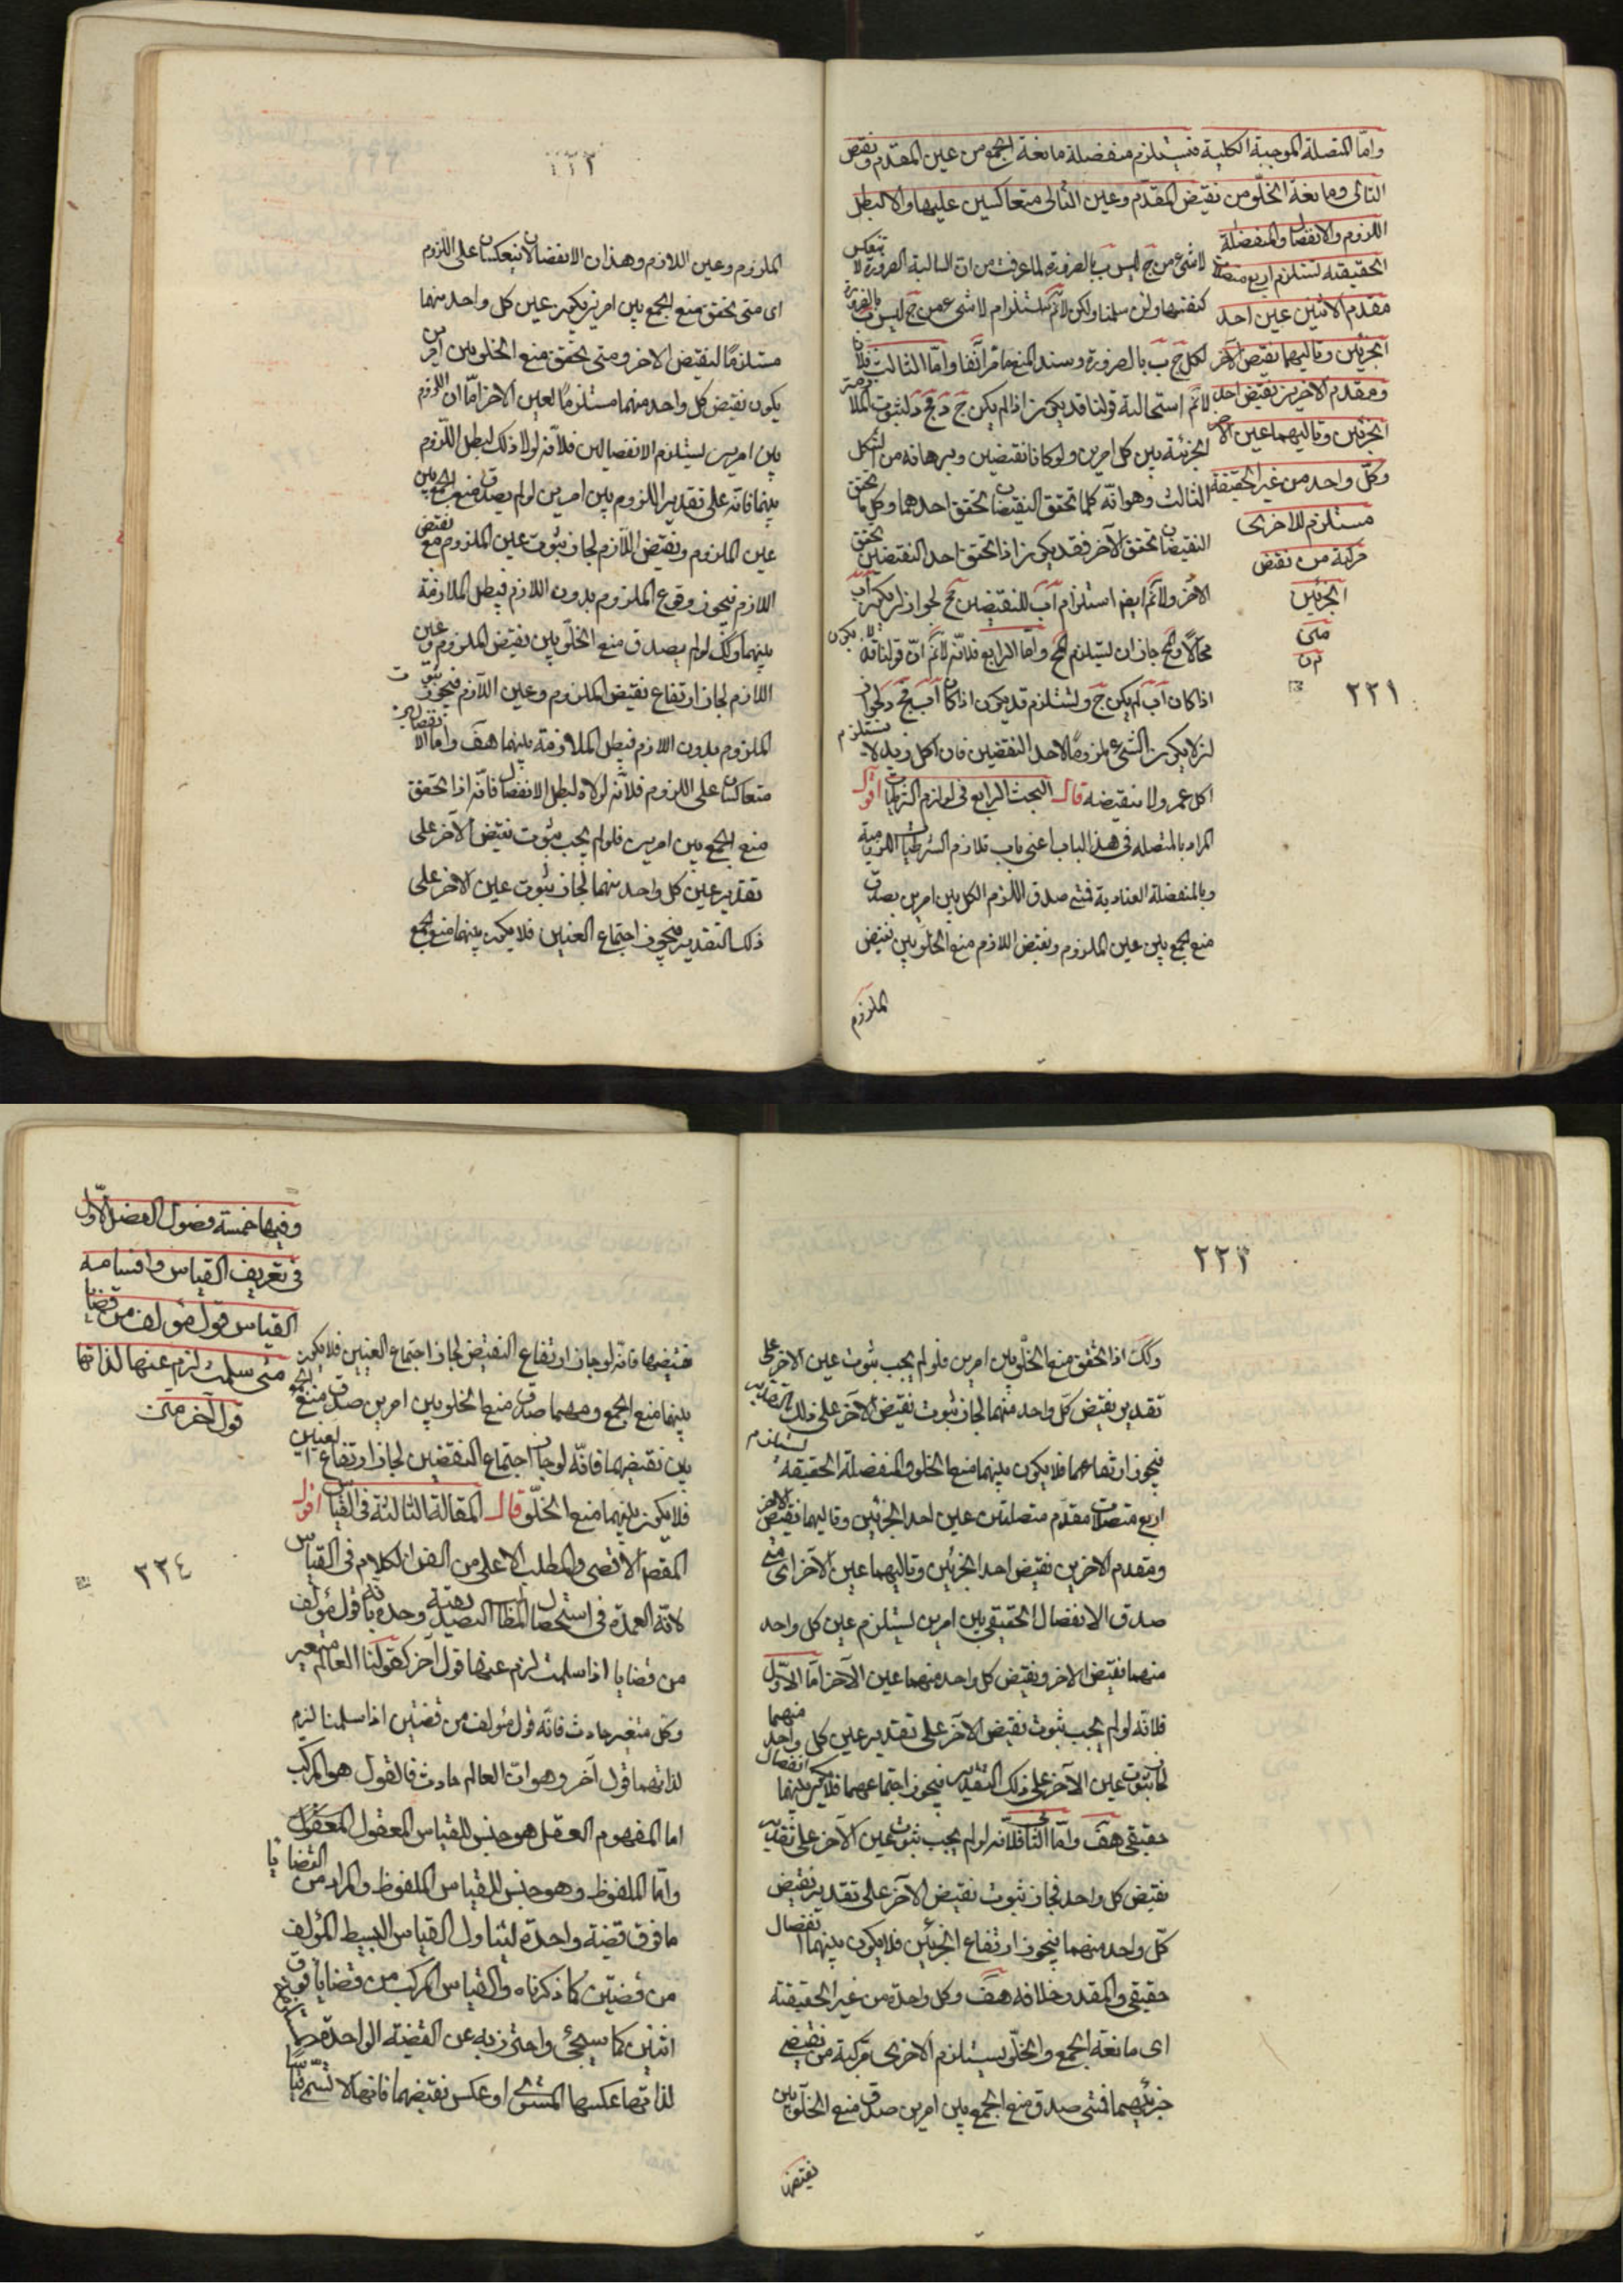 وامّا المتصلة الموجبة الكلية فتستلزم منفصلة مانعة الجمع من عين المقدم ونقيض
التالى ومانعة الخلو من نقيض المقدم وعين التالى متعاكسين عليهما والا لبطل
اللزوم والانفصال والمنفصلة
الحقيقية تستلزم اربع متصلات
مقدم الاثنين عين احد
الجزئين وتاليهما نقيض الآخر
ومقدم الاخرين نقيض احد
الجزئين وتاليهما عين الآخر
وكل واحد من غير الحقيقة
مستلزم للاخرى
مركبة من نقيض
الجزئين
متن
٢٢١
لا شئ من ج ليس ب بالضرورة لما عرفت من ان السالبة الضرورية لا تنعكس
كنفسها ولئن سلمنا ولكن لانم استلزام لا شئ من ج ليس ب بالضرورة
لكل ج ب بالضرورة وسند المنع ما مر آنفا وامّا الثالث فلان
لانم استحالة قولنا قد يكون اذا لم يكن ج د فج د لثبوت الملازمة
الجزئية بين كل امرين ولو كانا نقيضين وبرهانه من الشكل
الثالث وهو انّه كلما تحقق النقيضان تحقق احدهما وكلما تحقق
النقيضان تحقق الآخر فقد يكون اذا تحقق احد النقيضين تحقق
الآخر ولانم ايض استلزام آب للنقيضين مح لجواز ان يكون آب
محالا والمح جاز ان يستلزم المح وامّا الرابع فلانّه لانم انّ قولنا قد لا يكون
اذا كان آب لم يكن ج د يستلزم قد يكون اذا كان آب فج د لجواز
ان لا يكون الشئ ملزوما لاحد النقيضين فان اكل زيد لا يستلزم
اكل عمرو ولا نقيضه قال البحث الرابع فى لوازم الشرطيات اقول
المراد بالمتصلة فى هذا الباب اعنى باب تلازم الشرطيات اللزومية
وبالمنفصلة العنادية فمتى صدق اللزوم الكلى بين امرين يصدق
منع الجمع بين عين الملزوم ونقيض اللازم منع الخلو بين نقيض
الملزوم
٢٢٢
الملزوم وعين اللازم وهذان الانفصالان ينعكسان على اللزوم
اى متى تحقق منع الجمع بين امرين يكون عين كل واحد منهما
مستلزمًا لنقيض الآخر ومتى تحقق منع الخلو بين امرين
يكون نقيض كل واحد منهما مستلزمًا لعين الآخر امّا ان اللزوم
بين امرين يستلزم الانفصالين فلانّه لولا ذلك لبطل اللزوم
بينهما فانّه على تقدير اللزوم بين امرين لو لم يصدق منع الجمع بين
عين الملزوم ونقيض اللازم لجاز ثبوت عين الملزوم مع نقيض
اللازم فيجوز وقوع الملزوم بدون اللازم فيبطل الملازمة
بينهما وكك لو لم يصدق منع الخلو بين نقيض الملزوم وعين
اللازم لجاز ارتفاع نقيض الملزوم وعين اللازم فيجوز ثبوت
الملزوم بدون اللازم فيبطل الملازمة بينهما هف وامّا ان الانفصالين
متعاكسان على اللزوم فلانّه لولاه لبطل الانفصال فانّه اذا تحقق
منع الجمع بين امرين فلو لم يجب ثبوت نقيض الآخر على
تقدير عين كل واحد منهما لجاز ثبوت عين الآخر على
ذلك التقدير فيجوز اجتماع العينين فلا يكون بينهما منع الجمع
٢٢٣
وكك اذا تحقق منع الخلو بين امرين فلو لم يجب ثبوت عين الآخر على
تقدير نقيض كل واحد منهما لجاز ثبوت نقيض الآخر على ذلك التقدير
فيجوز ارتفاعهما فلا يكون بينهما منع الخلو والمنفصلة الحقيقة تستلزم
اربع متصلات مقدم متصلتين عين احد الجزئين وتاليهما نقيض الآخر
ومقدم الاخرين نقيض احد الجزئين وتاليهما عين الآخر اى متى
صدق الانفصال الحقيقى بين امرين يستلزم عين كل واحد
منهما نقيض الآخر ونقيض كل واحد منهما عين الآخر امّا الاوّل
فلانّه لو لم يجب ثبوت نقيض الآخر على تقدير عين كل واحد منهما
لجاز ثبوت عين الآخر على ذلك التقدير فيجوز اجتماعهما فلا يكون بينهما انفصال
حقيقى هف وامّا الثانى فلانّه لو لم يجب ثبوت عين الآخر على تقدير
نقيض كل واحد فجاز ثبوت نقيض الآخر على تقدير نقيض
كل واحد منهما فيجوز ارتفاع الجزئين فلا يكون بينهما انفصال
حقيقى والمقدر خلافه هف وكل واحدة من غير الحقيقية
اى مانعة الجمع والخلو يستلزم الاخرى مركبة من نقيضى
جزئيهما فمتى صدق منع الجمع بين امرين صدق منع الخلو بين
نقيضيهما
وفيها خمسة فصول الفصل الاول
فى تعريف القياس واقسامه
القياس قول مؤلف من قضايا
متى سلمت لزم عنها لذاتها
قول آخر متن
٢٢٤
نقيضيهما فانّه لو جاز ارتفاع النقيض لجاز اجتماع العينين فلا يكون
بينهما منع الجمع ومهما صدق منع الخلو بين امرين صدق منع الجمع
بين نقيضيهما فانّه لو جاز اجتماع النقيضين لجاز ارتفاع العينين
فلا يكون بينهما منع الخلو قال المقالة الثالثة فى القياس اقول
المقصد الاقصى والمطلب الاعلى من الفن الكلام فى القياس
لانّه العمدة فى استحصال المطالب التصديقية وحده بانّه قول مؤلف
من قضايا اذا سلمت لزم عنها قول آخر كقولنا العالم متغير
وكل متغير حادث فانّه قول مؤلف من قضيتين اذا سلمتا لزم
لذاتهما قول آخر وهو انّ العالم حادث فالقول هو المركب
اما المفهوم العقلى هو جنس للقياس المعقول
وامّا الملفوظ وهو جنس للقياس الملفوظ والمراد من القضايا
ما فوق قضية واحدة ليتناول القياس البسيط المؤلف
من قضيتين كما ذكرناه والقياس المركب من قضايا فوق
اثنتين كما سيجئ واحترز به عن القضية الواحدة
لذاتها عكسها المستوى او عكس نقيضهما فانها لا تسمى قياسًا